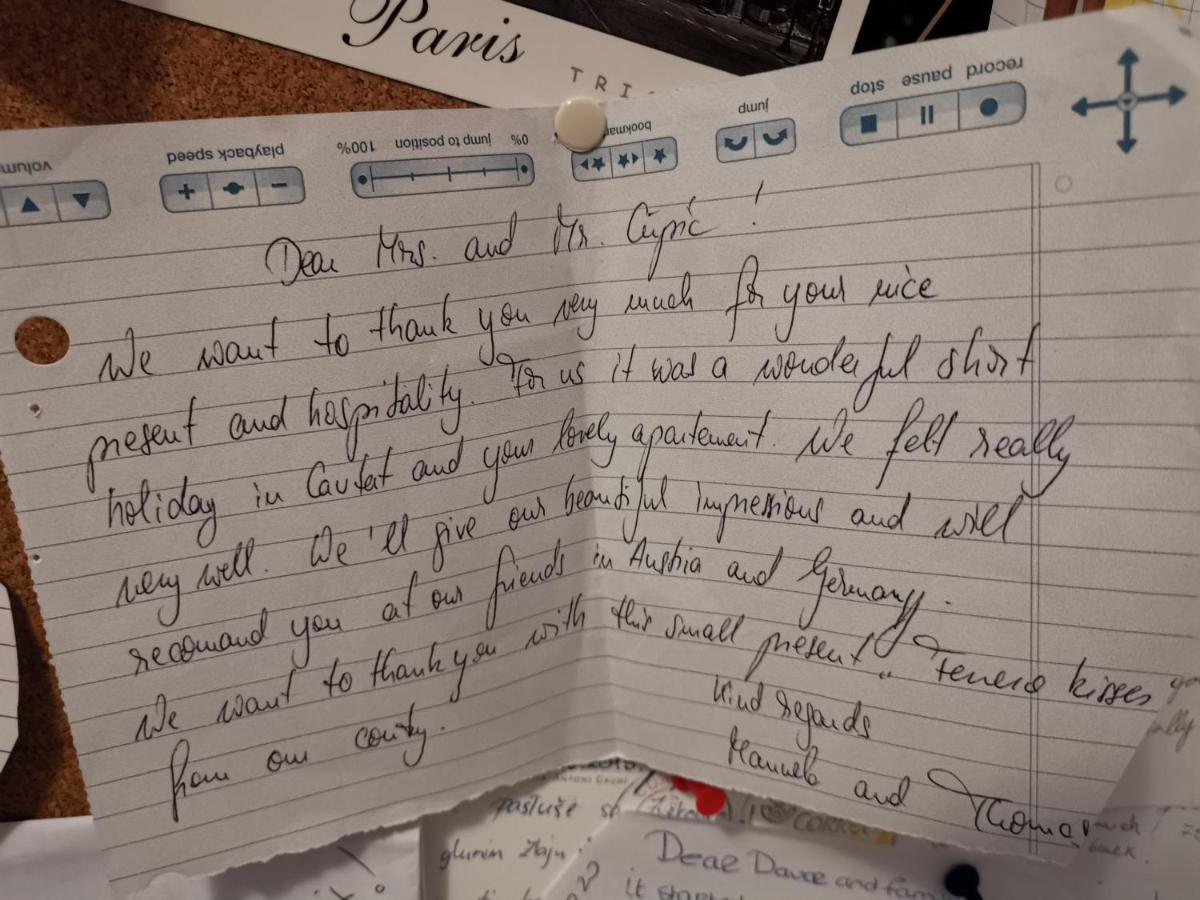 Paris
TRI
record pause stop
jump
bookmar
0% jump to position 100%
playback speed
volum
Dear Mrs. and Mr. Cupić !
We want to thank you very much for your nice
present and hospitality. For us it was a wonderful short
holiday in Cavtat and your lovely apartement. We felt really
very well. We'll give our beautiful impressions and will
recomand you at our friends in Austria and Germany.
We want to thank you with this small present „ kisses
from our county.
Kind regards
Manuela and Thomas
pasluše
glumim
Dear Davor and fam
it start
back.